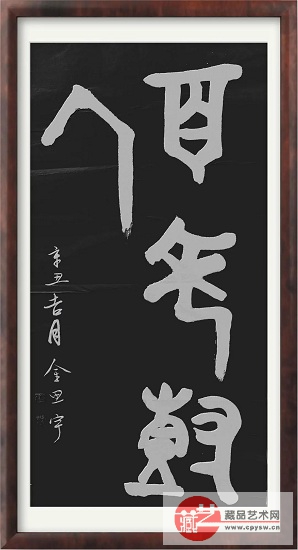 百年
人
辛丑吉月 金思宇
藏艺
藏品艺术网
www.cpysw.cn